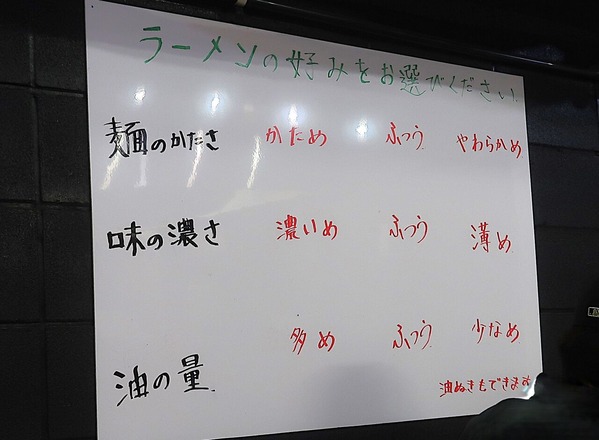 ラーメンの好みをお選びください
麺のかたさ かため ふつう やわらかめ
味の濃さ 濃いめ ふつう 薄め
油の量 多め ふつう 少なめ
油ぬきもできます